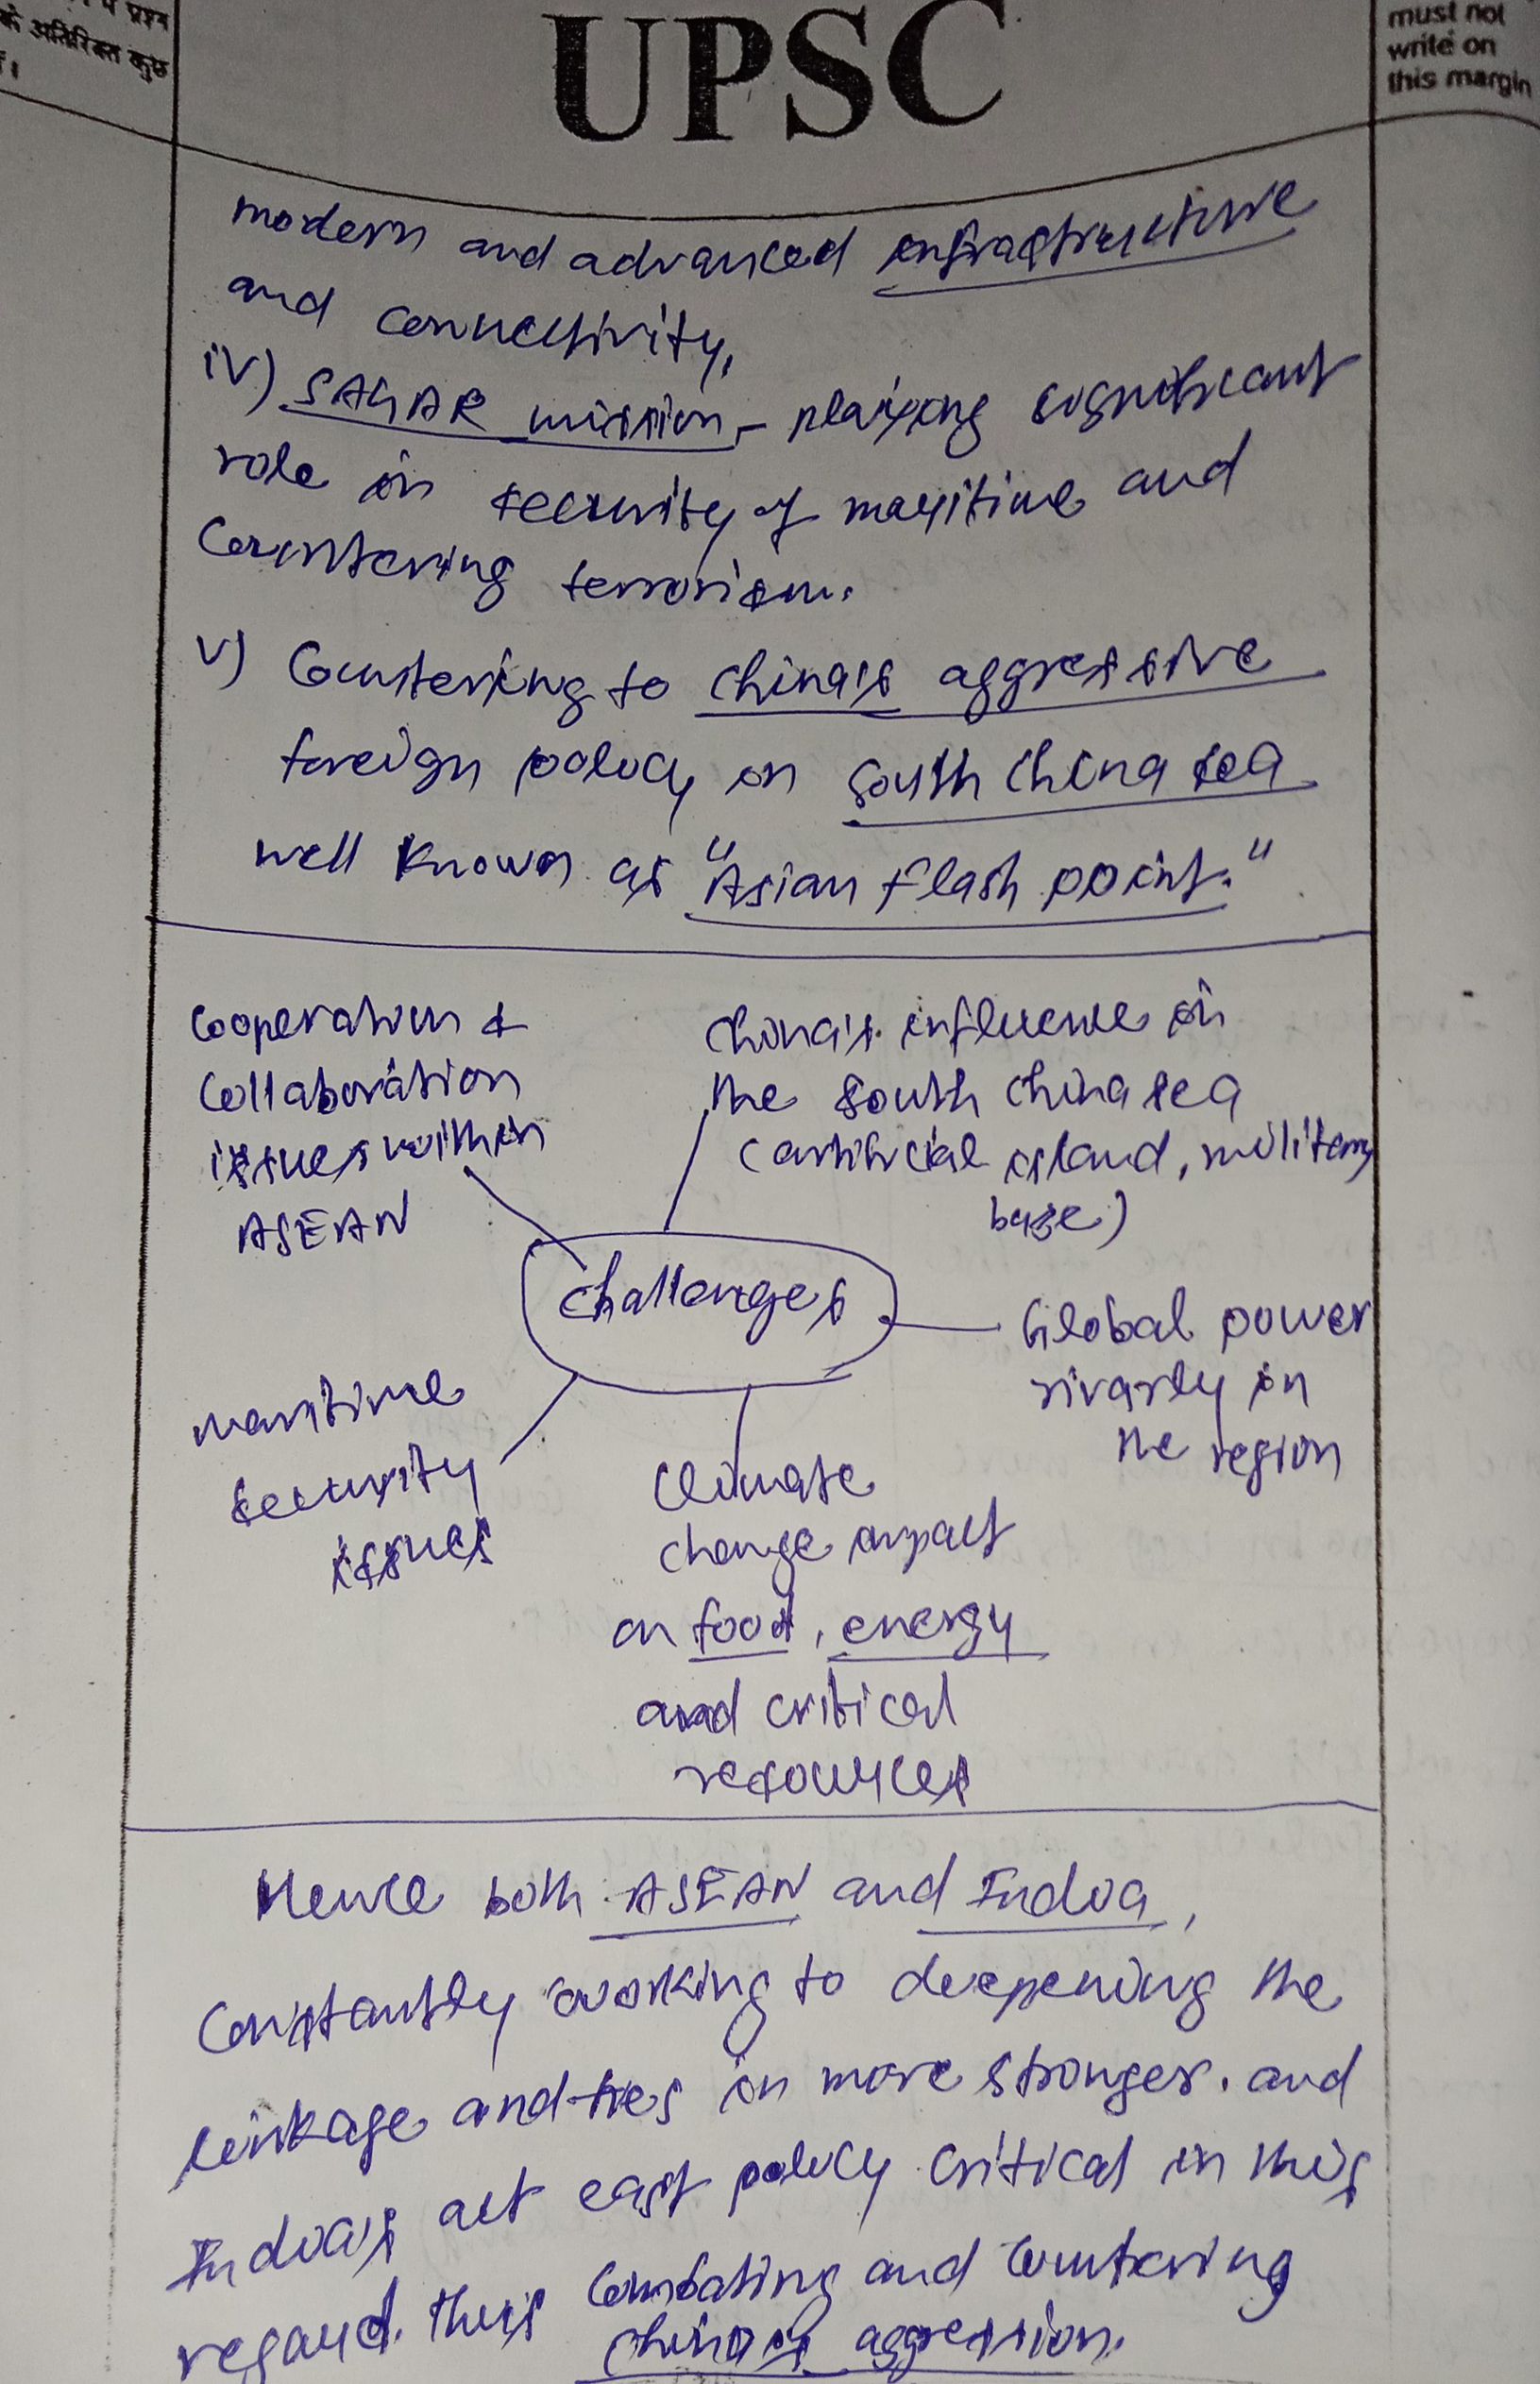 प्रश्न
के अतिरिक्त कुछ
UPSC
must not
write on
this margin
modern and advanced infrastructure
and connectivity.
iv) SAGAR mission - playing significant
role in security of maritime and
Countering terrorism.
v) Countering to china's aggressive
foreign policy on south china sea
well known as "Asian flash point."
Cooperation &
Collaboration
issues within
ASEAN
china's influence in
the south china sea
(artificial island, military
base)
challenges
Global power
rivarly in
the region
maritime
security
issues
Climate
change impact
on food, energy
and critical
resources
Hence both ASEAN and India,
Constantly working to deepening the
linkage and ties in more stronger. and
India's act east policy critical in this
regard. thus Combating and Countering
china's aggression.